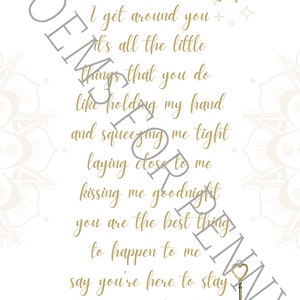 I get around you
it's all the little
things that you do
like holding my hand
and squeezing me tight
laying close to me
kissing me goodnight
you are the best thing
to happen to me
say you're here to stay
POEMS FOR PENNY